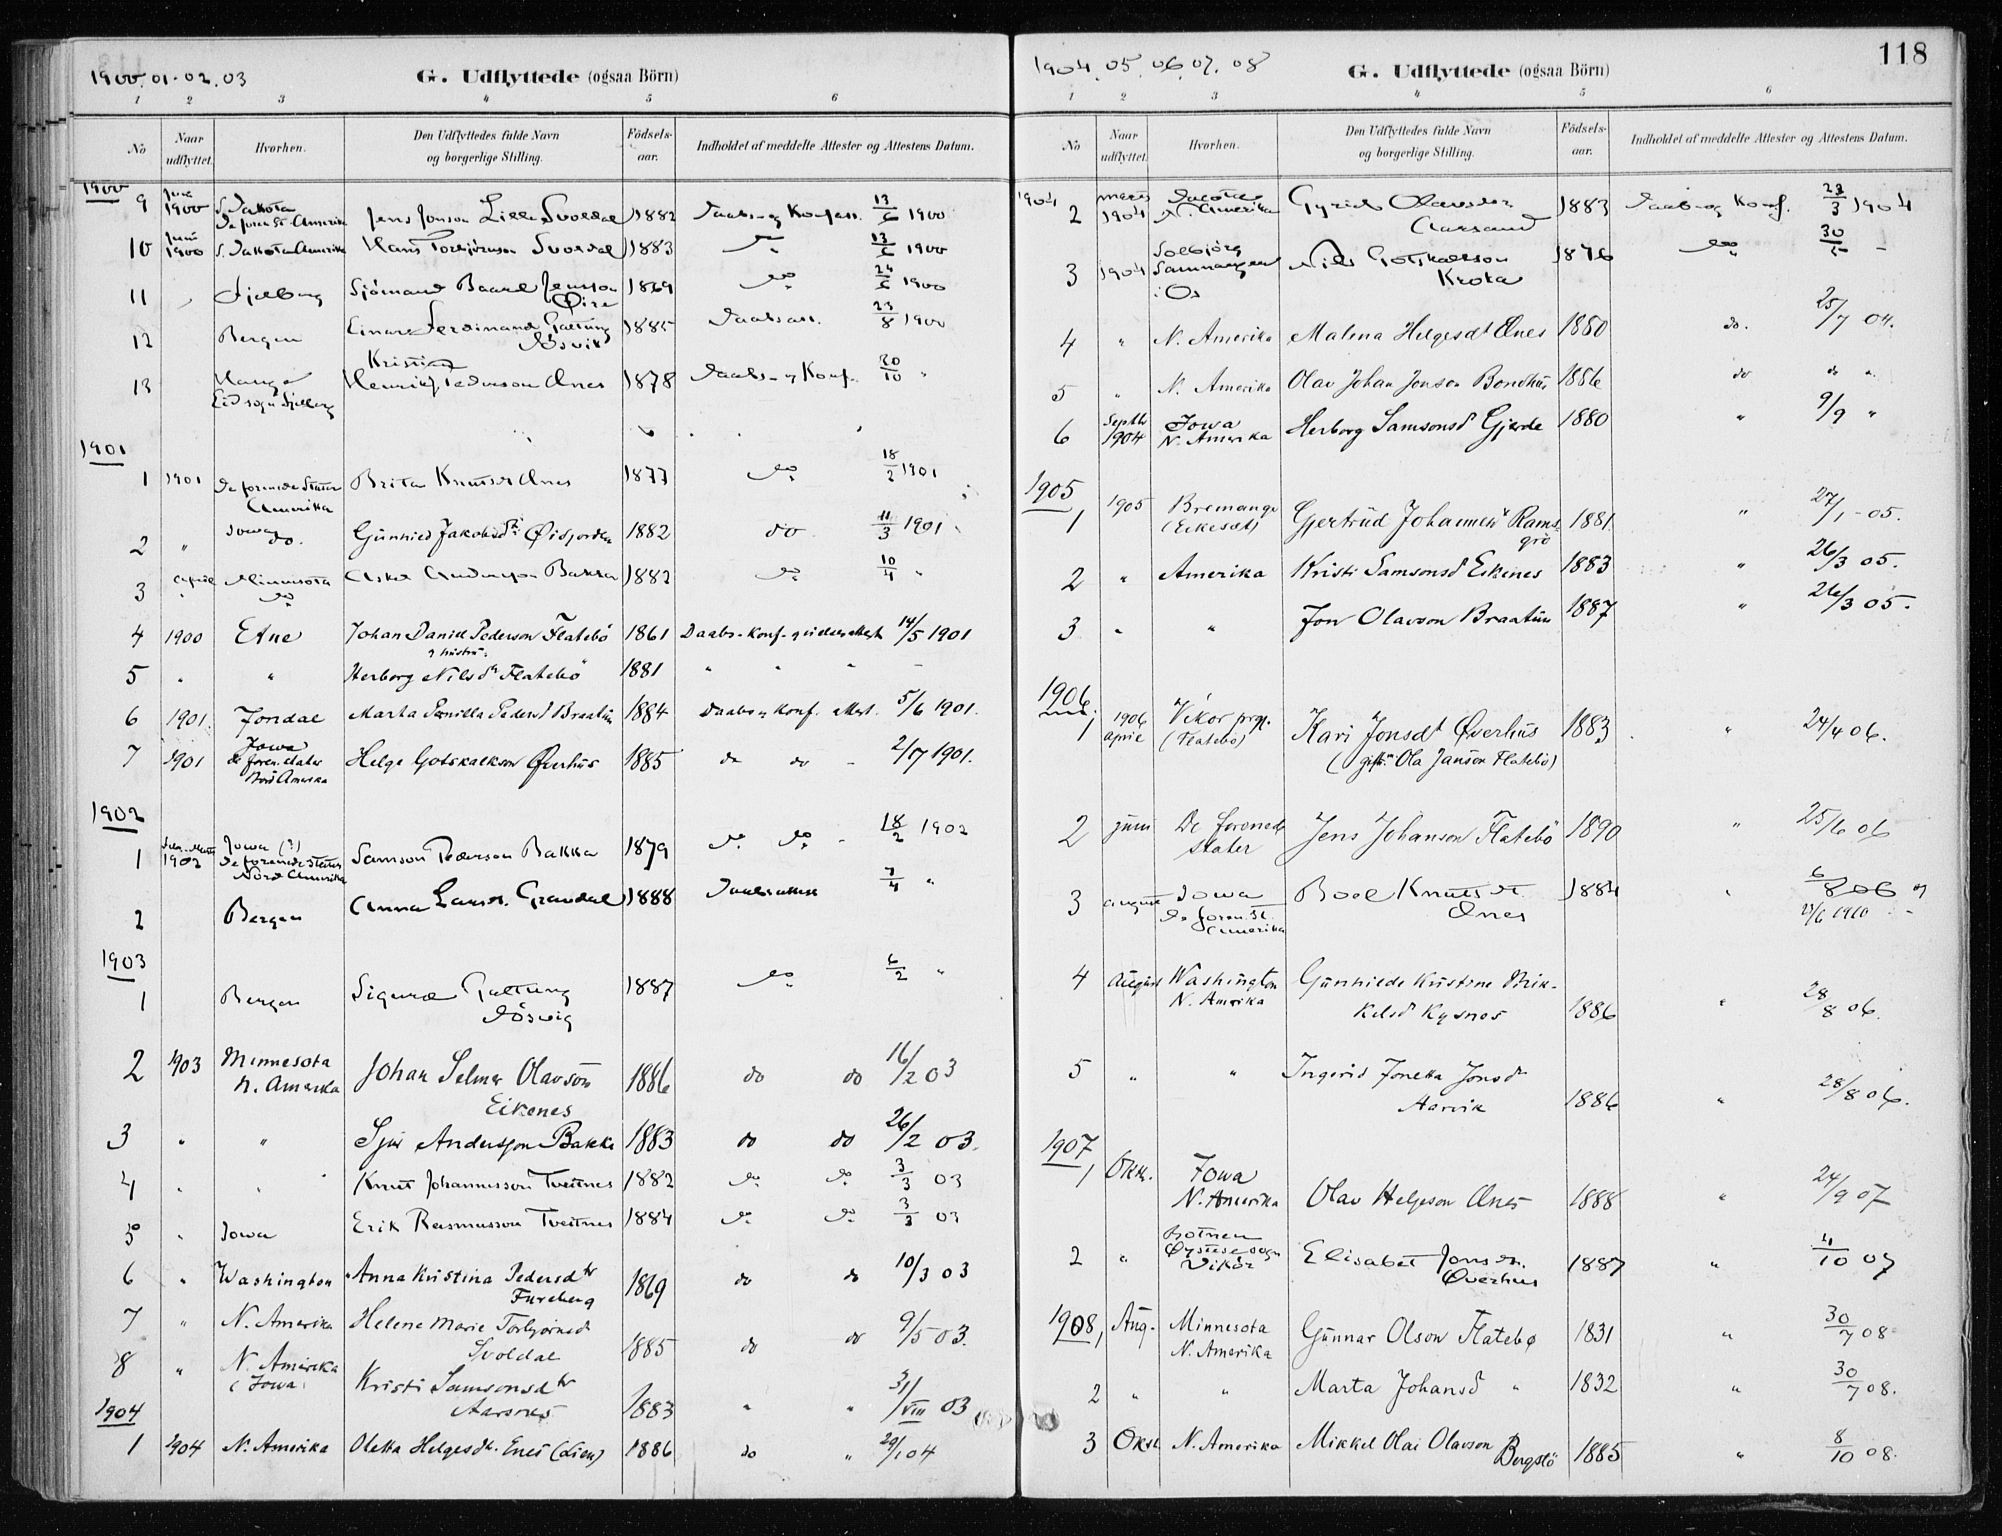 1900. 01. 02. 03
G. Udflyttede (ogsaa Börn)
1 2 3 4 5 6
No Naar udflyttet. Hvorhen. Den Udflyttedes fulde Navn og borgerlige Stilling. Födsels-aar. Indholdet af meddelte Attester og Attestens Datum.
1900
9 Juni 1900 S. Dakota De foren. St. Amerika Jens Jonson Lille Svoldal 1882 Daabs og Konf.att. 13/6 1900
10 Juni 1900 S. Dakota Amerika Hans Torbjörnson Svoldal 1883 do 13/6 1900
11 Fjelberg Sjömand Baard Jensson Øire 1869 do 24/6 1900
12 Bergen Einar Ferdinand Gattung Rösvik 1885 Daabsatt. 23/8 1900
Kristian
13 Hauge Henrik Pederson Ænes 1878 Daabs- og Konf. 30/10 "
Eid sogn Fjelberg
1901
1 1901 De forenede Stater Amerika Brita Knutsd Ænes 1877 do 18/2 1901
2 " Iowa do. Gunhild Jakobsdtr Øifjorden 1882 do 11/3 1901
3 April Minnesota do Askel Anderson Bakka 1882 do 10/4 "
4 1900 Etne Johan Daniel Pederson Flatebö 1861 Daabs- Konf- 14/5 1901
og hustru:
5 " " Herborg Nilsdtr Flatebö 1881 " " "
6 1901. Jondal Marta Pernilla Pedersd Braatun 1884 Daabs og Konf. attest. 5/6 1901.
7 1901 Jowa de foren. stater Nord Amerika Helge Gotskalkson Øverhus 1885 do do 2/7 1901.
1902
1 1902 Jowa (?) De forenede Stater Nord Amerika Samson Pederson Bakka 1879 do do 18/2 1902
2 Bergen Anna Larsdr. Gravdal 1888 Daabsattest 7/4 "
1903
1 Bergen Sigurd Gattung Rösvig 1887 do 6/2 "
2 1903 Minnesota N. Amerika Johan Selmer Olavson Eikenes 1886 do do 16/2 03
3 " " Sjur Andersson Bakke 1883 do do 26/2 03.
4 " " Knut Johannesson Tveitnes 1882 do do 3/3 03
5 " Iowa Erik Rasmusson Tveitnes 1884 do do 3/3 03
6 " Washington Anna Kristina Pedersdtr Fureberg 1869 do do 10/3 03
7 " N. Amerika Helene Marie Torbjörnsd Svoldal 1885 do do 9/5 03.
8 " N. Amerika (Iowa) Kristi Samsonsdtr Aarsnes 1883 " " 31/VIII 03
1904
1 1904 N. Amerika Oletta Helgesdtr. Enes (Lien) 1886 do " 29/1 04
1904. 05. 06. 07. 08
G. Udflyttede (ogsaa Börn)
118
1 2 3 4 5 6
No Naar udflyttet. Hvorhen. Den Udflyttedes fulde Navn og borgerlige Stilling. Födsels-aar. Indholdet af meddelte Attester og Attestens Datum.
1904
2 marts 1904 Dacota N. Amerika Gyrid Olavsdtr Aarsand 1883 Daabs og Konf. 23/3 1904
3 1904 Solbjörg Samnanger i Os Nils Gotskalkson Krota 1876 do 30/5 "
4 " N. Amerika Malena Helgesdt Ænes 1880 do. 25/7 04.
5 " N. Amerika Olav Johan Jonson Bondhus 1886 do do "
6 Septbr 1904 Jowa N. Amerika Herborg Samsonsd Gjerde 1880 " 9/9 "
1905
1 1905 Bremanger Gjertrud Johannesd Ramsgrö 1881 " 27/1 - 05.
2 " Amerika Kristi Samsonsd Eikenes 1883 " 26/3 05.
3 " " Jon Olavson Braatun 1887 " 26/3 05.
1906.
1 1906 April Vikör prgj. (Flatebö) Kari Jonsdt Øverhus 1883 " 24/4 06.
(gift: Ola Janson Flatebö)
2 juni De forenede stater Jens Johanson Flatebö 1890 " 25/6 06
3 august Iowa De foren. St. Amerika Boel Knutsdt Ænes 1884 " 6/8 06 og 23/6 1910
4 August Washington N. Amerika Gunhilde Kristine Mik-kelsd Kysnes 1886 " 28/8 06.
5 " " Ingerid Jonetta Jonsd Aarvik 1886 " 28/8 06.
1907
1 Oktr. Iowa N. Amerika Olav Helgeson Ænes 1888 " 24/9 07
2 " Botnen Øystese sogn Vikör Elisabet Jonsdr. Øverhus 1887 " 11/10 07
1908
1 Aug. Minnesota N. Amerika Gunnar Olson Flatebø 1831 " 30/7 08.
2 " " Marta Johansd " 1832 " 30/7 08.
3 Oktr N. Amerika Mikkel Olai Olavson Bergstö 1885 " 8/10 08.